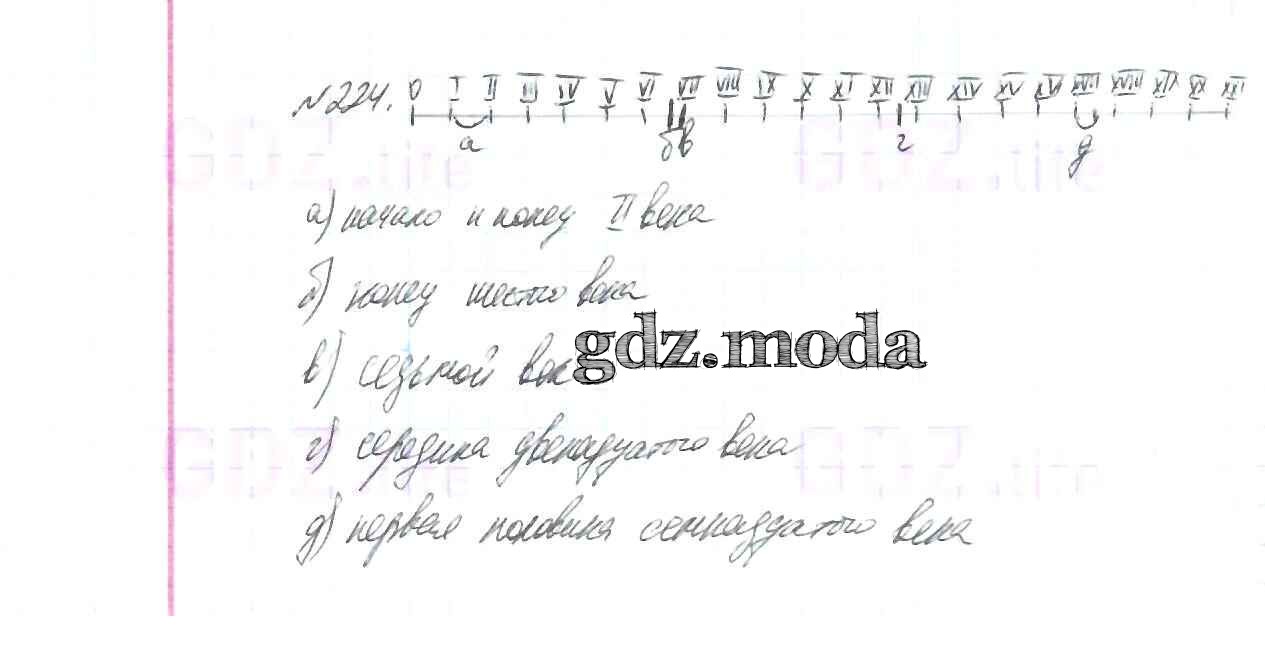 №224. 0 I II III IV V VI VII VIII IX X XI XII XIII XIV XV XVI XVII XVIII XIX XX XXI
а б в г д
а) начало и конец II века
б) конец шестого века
в) седьмой век
gdz.moda
г) середина двенадцатого века
д) первая половина семнадцатого века
GDZ.life GDZ.life
GDZ.life GDZ.life